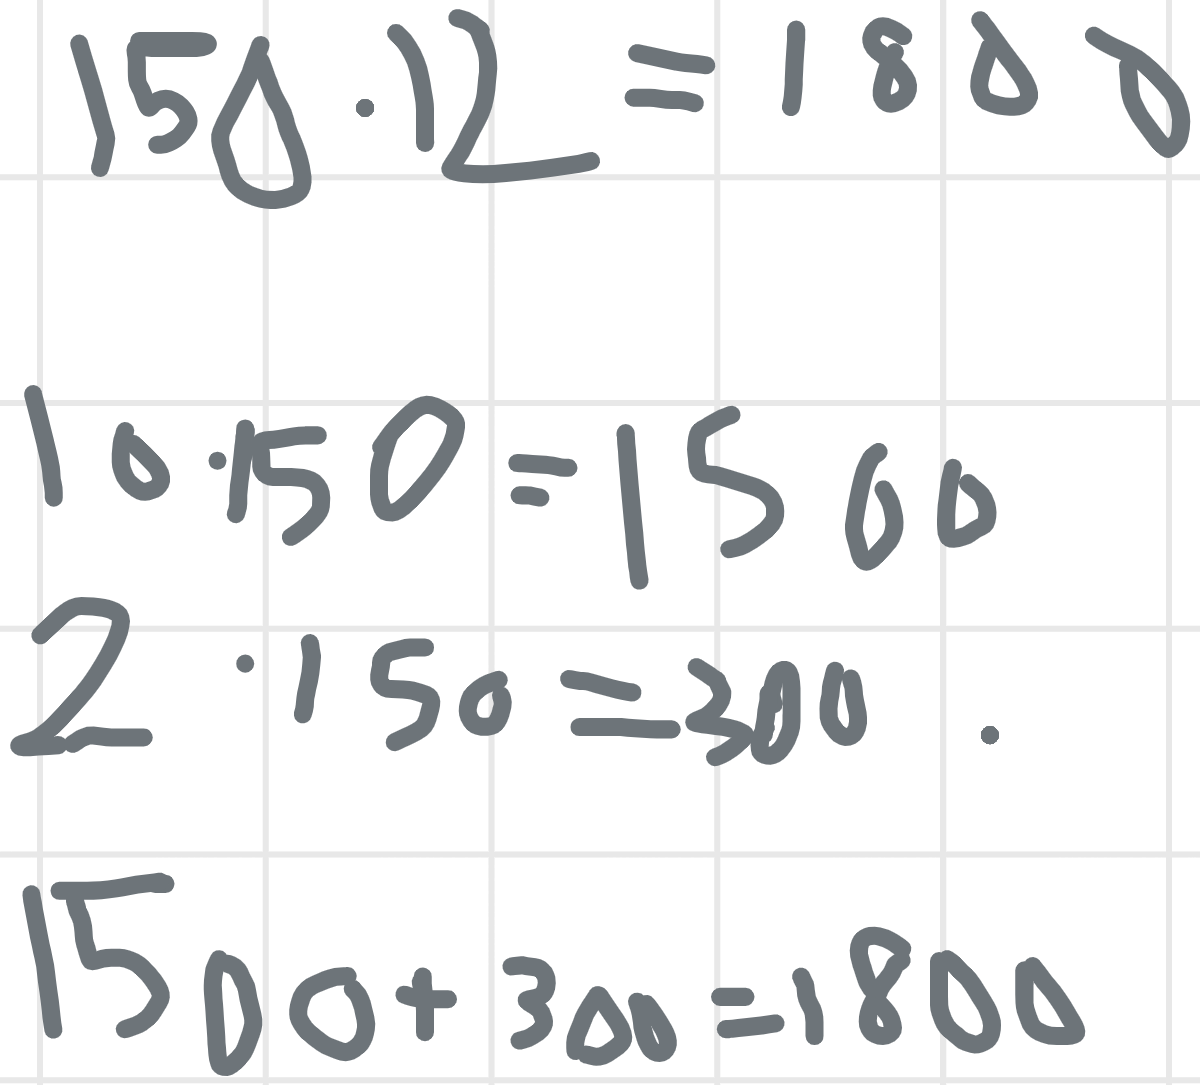 150 · 12 = 1800
10 · 150 = 1500
2 · 150 = 300 .
1500 + 300 = 1800